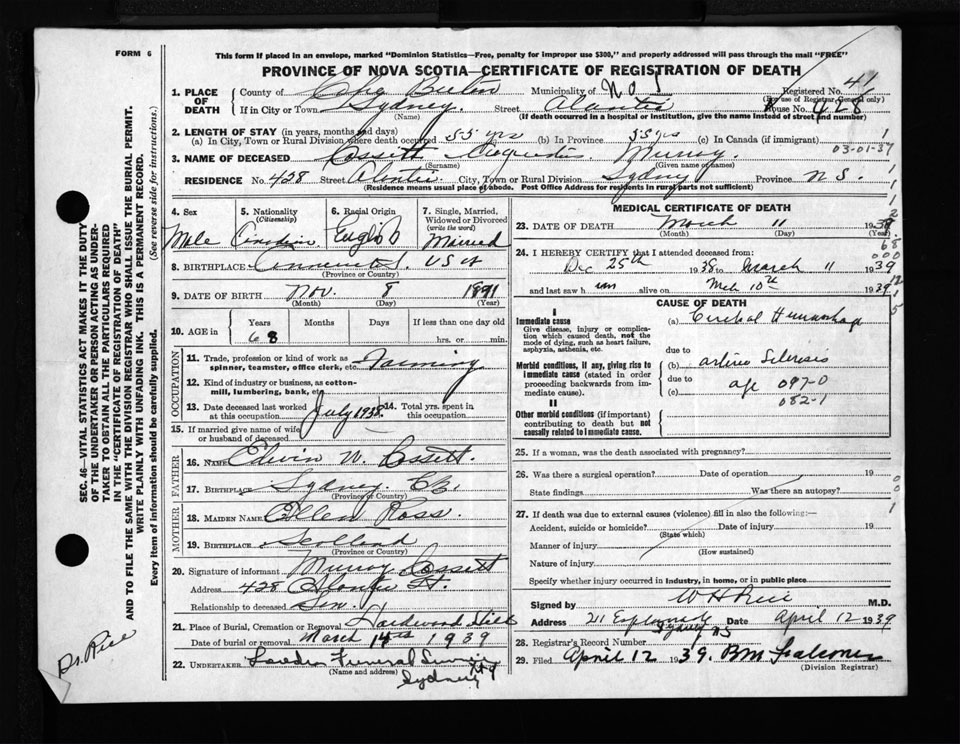 FORM 6
This form if placed in an envelope, marked "Dominion Statistics—Free, penalty for improper use $300," and properly addressed will pass through the mail "FREE"
PROVINCE OF NOVA SCOTIA—CERTIFICATE OF REGISTRATION OF DEATH
1. PLACE OF DEATH County of Cape Breton Municipality of No 1 Registered No. 41
(For use of Registrar General only)
If in City or Town Sydney. Street House No. 428
(Name) (If death occurred in a hospital or institution, give the name instead of street and number)
2. LENGTH OF STAY (in years, months and days)
(a) In City, Town or Rural Division where death occurred 55 yrs (b) In Province 55 yrs (c) In Canada (if immigrant)
03-01-37
3. NAME OF DECEASED Cossitt Murray.
(Surname) (Given name or names)
RESIDENCE No. 428 Street City, Town or Rural Division Sydney Province N S.
(Residence means usual place of abode. Post Office Address for residents in rural parts not sufficient)
4. Sex Male
5. Nationality (Citizenship) Canadian
6. Racial Origin English
7. Single, Married, Widowed or Divorced (write the word) Married
8. BIRTHPLACE U S A
(Province or Country)
9. DATE OF BIRTH Nov. 8 1891
(Month) (Day) (Year)
10. AGE in Years Months Days If less than one day old
68 hrs. or min.
OCCUPATION
11. Trade, profession or kind of work as spinner, teamster, office clerk, etc. Farming
12. Kind of industry or business, as cotton-mill, lumbering, bank, etc.
13. Date deceased last worked at this occupation July 1938 14. Total yrs. spent in this occupation
15. If married give name of wife or husband of deceased
FATHER
16. NAME Edwin W. Cossitt.
17. BIRTHPLACE Sydney C.B.
(Province or Country)
MOTHER
18. MAIDEN NAME Ellen Ross.
19. BIRTHPLACE Scotland
(Province or Country)
20. Signature of informant Murray Cossitt
Address 428 St.
Relationship to deceased Son.
21. Place of Burial, Cremation or Removal Hardwood Hill
Date of burial or removal March 14th 1939
22. UNDERTAKER Funeral Service
(Name and address) Sydney N S
MEDICAL CERTIFICATE OF DEATH
23. DATE OF DEATH March 11 1939
(Month) (Day) (Year)
24. I HEREBY CERTIFY that I attended deceased from:
Dec 25th 1938 to March 11 1939
and last saw h im alive on Mch 10th 1939
CAUSE OF DEATH
I
Immediate cause
Give disease, injury or complication which caused death, not the mode of dying, such as heart failure, asphyxia, asthenia, etc.
(a) Cerebral Hemorrhage
due to
Morbid conditions, if any, giving rise to immediate cause (stated in order proceeding backwards from immediate cause)
(b) arterio Sclerosis
due to
(c) 097-0
082-1
II
Other morbid conditions (if important) contributing to death but not causally related to immediate cause.
25. If a woman, was the death associated with pregnancy?
26. Was there a surgical operation? Date of operation 19
State findings Was there an autopsy?
27. If death was due to external causes (violence) fill in also the following:—
Accident, suicide or homicide? Date of injury 19
(State which)
Manner of injury
(How sustained)
Nature of injury
Specify whether injury occurred in industry, in home, or in public place
Signed by W H Rice M.D.
Address 211 Esplanade Sydney NS Date April 12 1939
28. Registrar's Record Number
29. Filed April 12 1939. B M Falconer
(Division Registrar)
SEC. 46—VITAL STATISTICS ACT MAKES IT THE DUTY
OF THE UNDERTAKER OR PERSON ACTING AS UNDER-
TAKER TO OBTAIN ALL THE PARTICULARS REQUIRED
IN THE "CERTIFICATE OF REGISTRATION OF DEATH"
AND TO FILE THE SAME WITH THE DIVISION REGISTRAR WHO SHALL ISSUE THE BURIAL PERMIT.
WRITE PLAINLY WITH UNFADING INK. THIS IS A PERMANENT RECORD.
Every item of information should be carefully supplied. (See reverse side for instructions.)
Dr. Rice